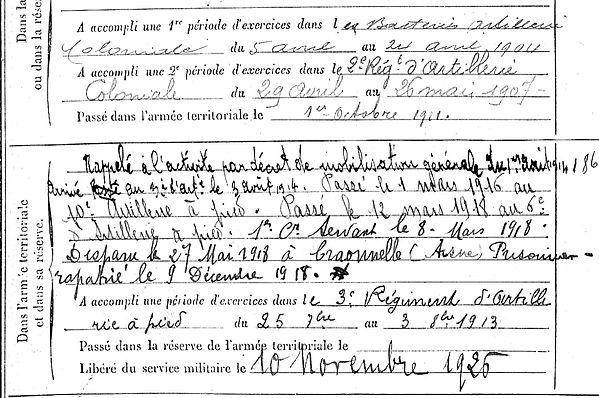 Dans la
ou dans la réserve
A accompli une 1re période d'exercices dans les Batteries artillerie
Coloniale du 5 avril au 24 avril 1904
A accompli une 2e période d'exercices dans le 2e Régt d'Artillerie
Coloniale du 29 avril au 26 mai 1907 -
Passé dans l'armée territoriale le 1er Octobre 1911.
Dans l'armée territoriale
et dans sa réserve.
Rappelé à l'activité par décret de mobilisation générale du 1er août 1914
Arrivé au 3e d'art. le 3 août 1914. Passé le 1 mars 1916 au
10e Artillerie à pied. Passé le 12 mars 1918 au 6e
d'Artillerie à pied. 1er Cr Servant le 8 - Mars 1918.
Disparu le 27 Mai 1918 à Craonnelle (Aisne) Prisonnier -
rapatrié le 9 Décembre 1918.
A accompli une période d'exercices dans le 3e Régiment d'artille
rie à pied du 25 7bre au 3 8bre 1913
Passé dans la réserve de l'armée territoriale le
Libéré du service militaire le 10 Novembre 1926